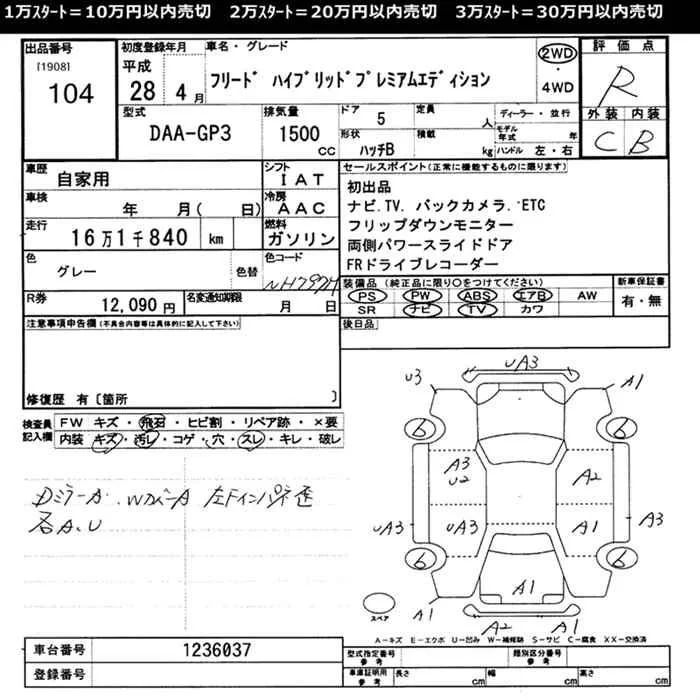 1万ｽﾀｰﾄ＝10万円以内売切　2万ｽﾀｰﾄ＝20万円以内売切　3万ｽﾀｰﾄ＝30万円以内売切
出品番号 初度登録年月 車名・グレード 2WD 評価点
[1908] 平成
104 28 4月 フリード ハイブリッドプレミアムエディション ・4WD R
型式 排気量 ドア 5 定員 人 ディーラー・並行 外装 内装
DAA-GP3 1500 cc 形状 ハッチB 積載 kg モデル年式 年 ハンドル 左・右 C B
車歴 自家用 シフト IAT セールスポイント(正常に機能するものに限ります)
車検 年 月( 日) 冷房 AAC 初出品
走行 16万1千840 km 燃料 ガソリン ナビ.TV. バックカメラ. ETC
フリップダウンモニター
両側パワースライドドア
FRドライブレコーダー
色 グレー 色替 色コード NH787M
装備品 (純正品に限り○をつけてください) 新車保証書
PS PW ABS エアB AW 有・無
SR ナビ TV カワ
R券 12,090円 名変通知期限 月 日
後日品
注意事項申告欄(不具合内容等は具体的に記入して下さい)
修復歴 有〔箇所 〕
検査員記入欄 FW キズ・飛石・ヒビ割・リペア跡・×要
内装 キズ・汚レ・コゲ・穴・スレ・キレ・破レ
各A、U
UA3
U3 A1
6 6
A3 U2 A2
UA3 UA3 A1 A3
6 6
A1
A1 A2 A1
スペア
A－キズ E－エクボ U－凹み W－補修跡 S－サビ C－腐食 XX－交換済
車台番号 1236037
登録番号
型式指定番号 参考 類別区分番号 参考
車庫証明用 参考 長さ cm 幅 cm 高さ cm